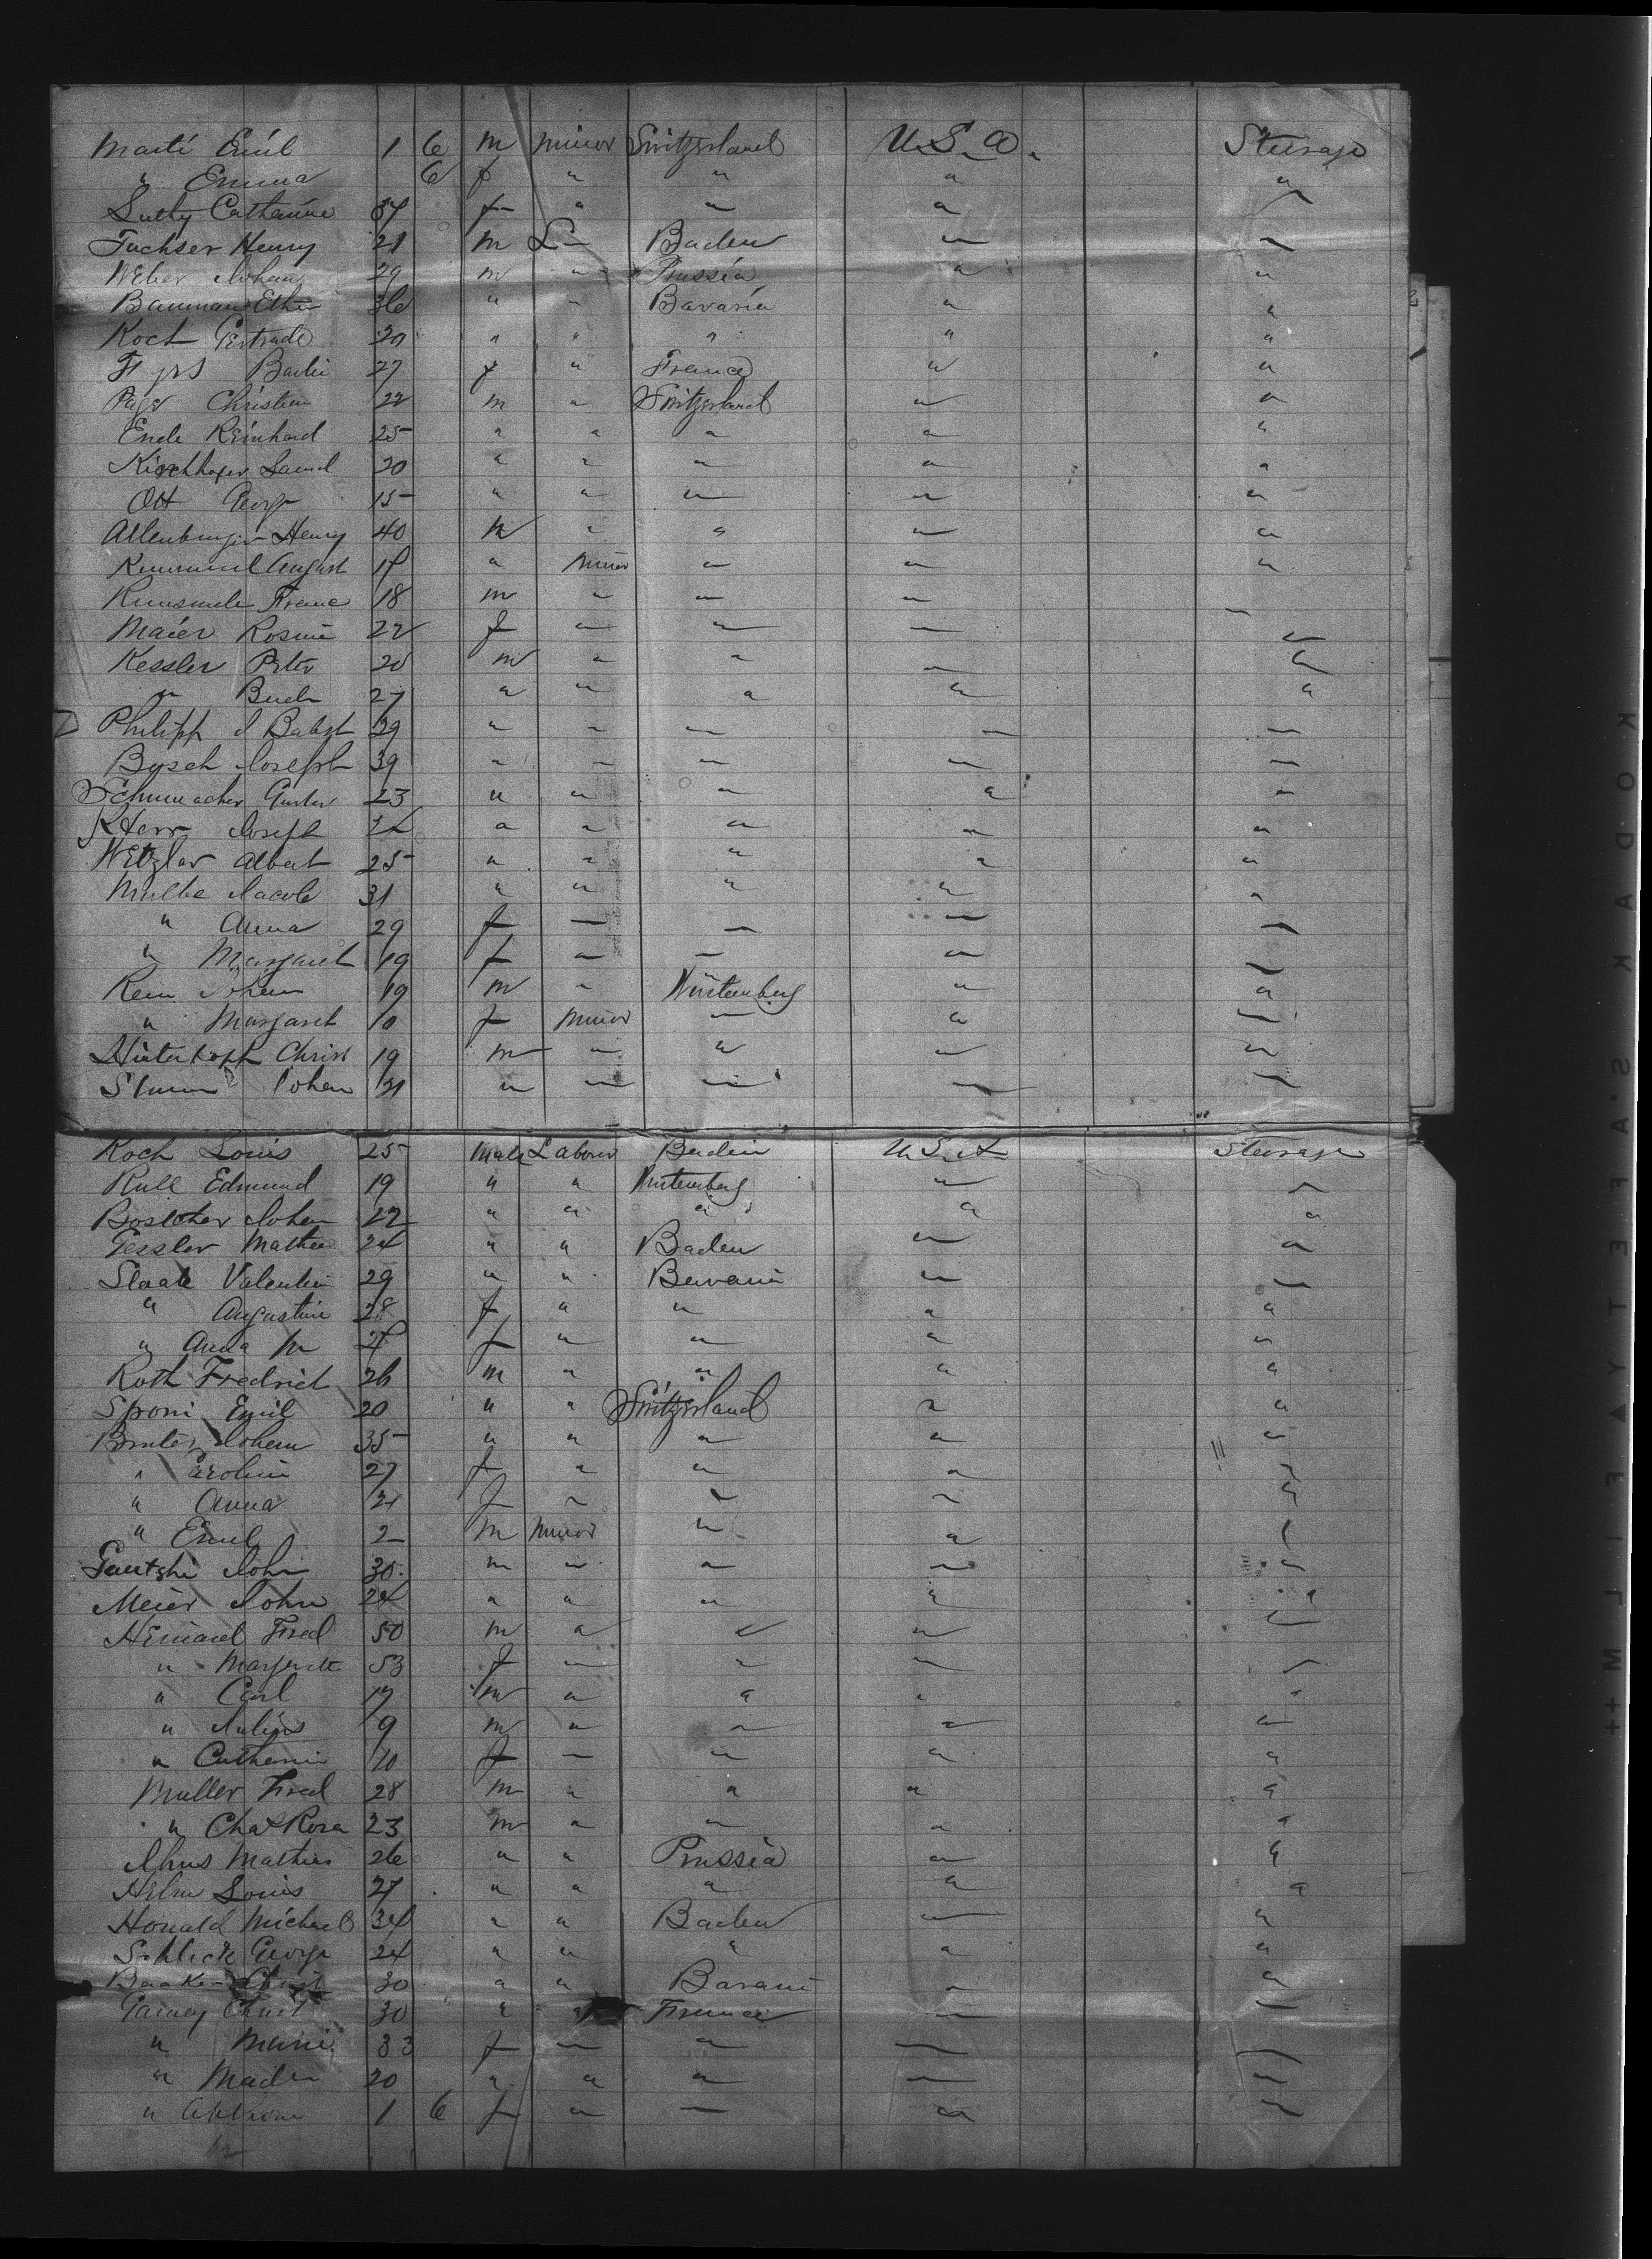 Marti Emil 1 6 m minor Switzerland U.S.A. Steerage
" Emma 6 f " " " "
Suthy Catharine f " " " "
Fuchser Henry 21 m L Baden " "
Weber Johan 29 m " Prussia " "
Bauman 36 " " Bavaria " "
Koch Gertrude 29 " " " " "
27 f " France " "
Christian 22 m " Switzerland " "
Ende Reinhard 25 " " " " "
Kirchhofer Samel 20 " " " " "
Ott George 15 " " " " "
Altenburger Henry 40 m " " " "
August " minor " " "
Franc 18 m " " " "
Maier Rosine 22 f " " " "
Kessler Peter 20 m " " " "
" 27 " " " " "
Philipp J Babst 29 " " " " "
Busch Joseph 39 " " " " "
Schumacher Gustav 23 " " " " "
Kherr Joseph " " " " "
Wetzlar Albert 25 " " " " "
Mulbe Jacob 31 " " " " "
" Anna 29 f " " " "
" Margaret 19 f " " " "
Rem Johan 19 m " Würtemberg " "
" Margaret 10 f minor " " "
Hinterkopf Christ 19 m " " " "
Johan 21 " " " " "
Koch Louis 25 Male Labour Baden U.S.A Steerage
Rull Edmund 19 " " Wurtemberg " "
Boscher Johan 22 " " " " "
Gessler Mathew 24 " " Baden " "
Staab Valentin 29 " " Bavaria " "
" Augustine 28 f " " " "
" Anna M f " " " "
Roth Fredrich 26 m " " " "
Sponi Emil 20 " " Switzerland " "
Johann 35 " " " " "
" Caroline 27 f " " " "
" Anna 21 f " " " "
" Emil 2 m minor " " "
Gautshi John 30 m " " " "
Meier John 24 " " " " "
Fred 50 m " " " "
" Margerette 53 f " " " "
" Carl 17 m " " " "
" Julius 9 m " " " "
" Catharin 10 f " " " "
Muller Fred 28 m " " " "
" Chat Rosa 23 m " " " "
Mathies 26 " " Prussia " "
Helm Louis 27 " " " " "
Honald Michael 34 " " Baden " "
Schlick George 24 " " " " "
Christ 30 " " Bavaria " "
Christ 30 " " France " "
" Marie 33 f " " " "
" 20 " " " " "
" 1 6 f " " " "